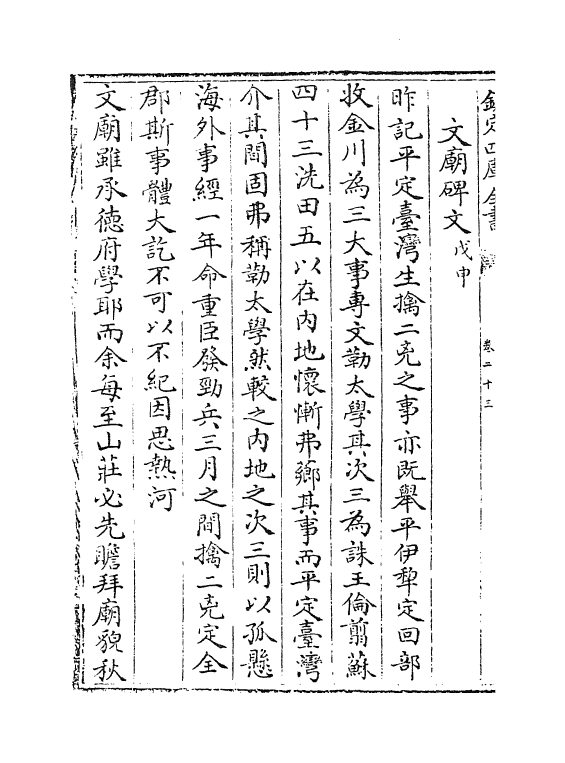 欽定四庫全書
卷二十三
文廟碑文戊申
昨記平定臺灣生擒二兇之事亦既舉平伊犂定回部
收金川為三大事專文勒太學其次三為誅王倫翦蘇
四十三洗田五以在内地懷慚弗薌其事而平定臺灣
介其間固弗稱勒太學然較之内地之次三則以孤懸
海外事經一年命重臣發勁兵三月之間擒二兇定全
郡斯事體大訖不可以不紀因思熱河
文廟雖承徳府學耶而余每至山莊必先瞻拜廟貌秋